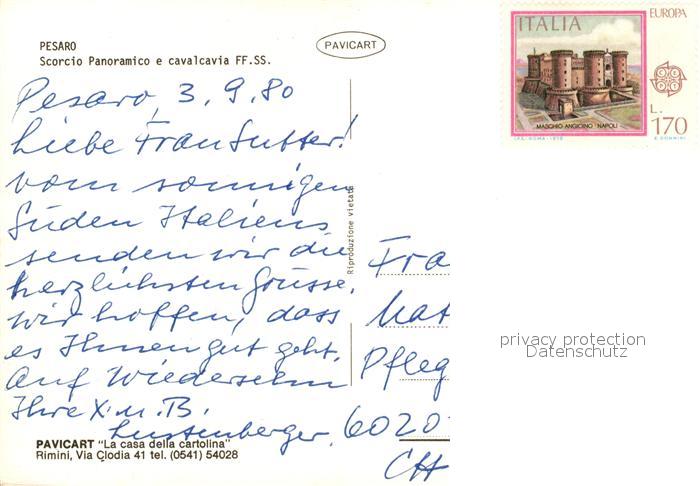 PESARO
Scorcio Panoramico e cavalcavia FF.SS.
PAVICART
ITALIA
EUROPA
MASCHIO ANGIOINO · NAPOLI
L. 170
Pesaro, 3.9.80
Liebe Frau Sutter!
vom sonnigen
Süden Italiens
senden wir die
herzlichsten Grüsse.
Wir hoffen, dass
es Ihnen gut geht.
Auf Wiedersehn
Ihre X. u. B.
Lustenberger.
Riproduzione vietata
Fra
Mat
Pfleg
6020
CH
privacy protection
Datenschutz
PAVICART "La casa della cartolina"
Rimini, Via Clodia 41 tel. (0541) 54028